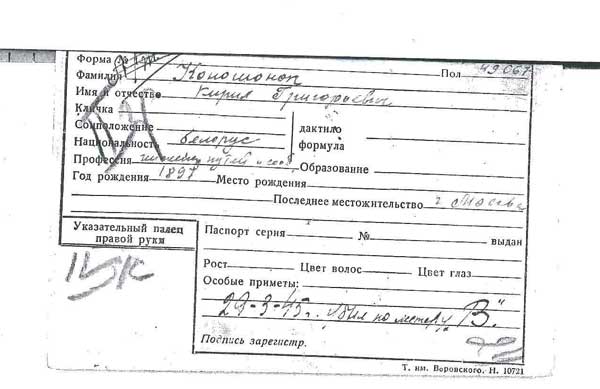 Форма №
Фамилия Кономоноп Пол 49067
Имя и отчество Кирил Григорьевич
Кличка
Соцположение дактило
Национальность белорус формула
Профессия инженер путей и сооб. Образование
Год рождения 1897 Место рождения
Последнее местожительство г. Москва
Указательный палец
правой руки
Паспорт серия № выдан
Рост Цвет волос Цвет глаз
Особые приметы:
29-3-45г. убыл по литеру "В"
Подпись зарегистр.
Т. им. Воровского. Н. 10721